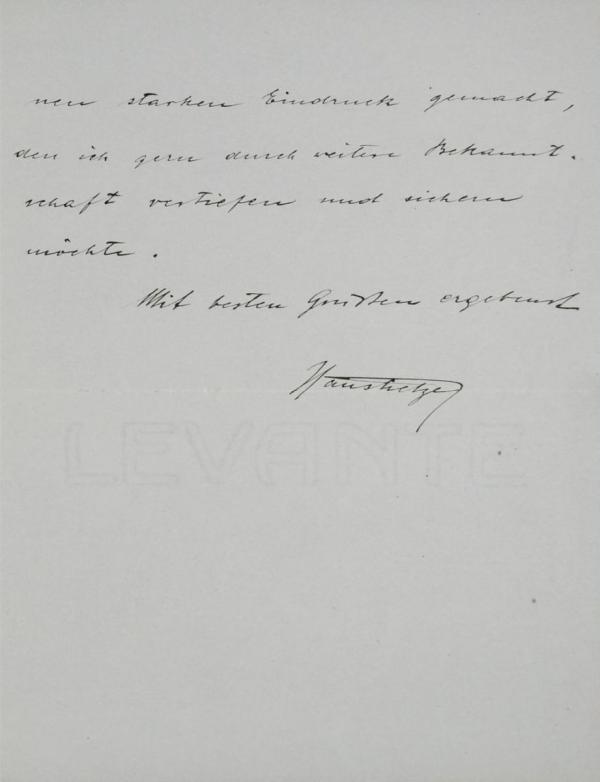 nen starken Eindruck gemacht,
den ich gern durch weitere Bekannt-
schaft vertiefen und sichern
möchte.
Mit besten Grüßen ergebenst
LEVANTE